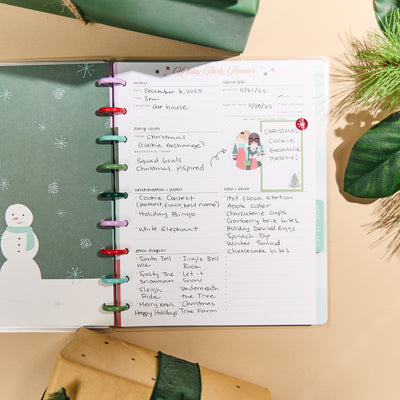 Holiday Party Planner
DATE
December 6, 2025
TIME
3pm
LOCATION
our house
INVITATIONS
SEND BY 11/21/25
RSVP BY 11/28/25
PARTY THEME
Christmas
(Cookie Exchange)
Squad Goals
Christmas inspired
CHRISTMAS
COOKIE
EXCHANGE
PARTY!
ENTERTAINMENT + GAMES
Cookie Contest
(tastiest, flaky, best name)
Holiday Bingo
White Elephant
FOOD + DRINK
Hot cocoa station
Apple cider
Charcuterie cups
Cranberry brie bites
Holiday Deviled Eggs
Spinach Dip
Winter Salad
Cheesecake bites
MUSIC PLAYLIST
Santa Tell me
Jingle Bell Rock
Frosty The Snowman
Let it Snow
Sleigh Ride
Underneath the Tree
Merry Xmas
Christmas Tree Farm
Happy Holidays